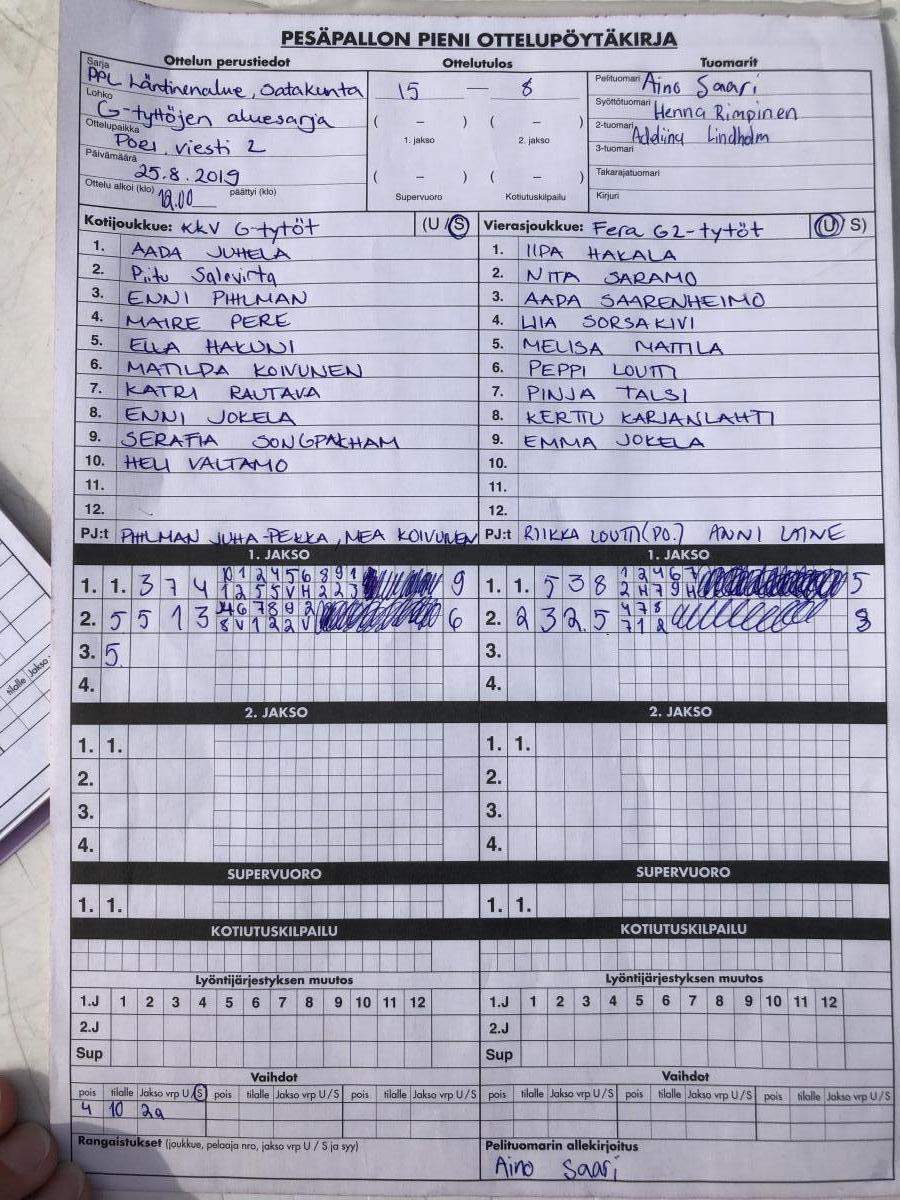 PESÄPALLON PIENI OTTELUPÖYTÄKIRJA
Ottelun perustiedot
Sarja
PPL Läntinenalue, Satakunta
Lohko
G-tyttöjen aluesarja
Ottelupaikka
Pori, viesti 2
Päivämäärä
25.8.2019
Ottelu alkoi (klo) 12.00 päättyi (klo)
Ottelutulos
15 — 8
( – ) ( – )
1. jakso 2. jakso
( – ) ( – )
Supervuoro Kotiutuskilpailu
Tuomarit
Pelituomari Aino Saari
Syöttötuomari Henna Rimpinen
2-tuomari Adeliina Lindholm
3-tuomari
Takarajatuomari
Kirjuri
Kotijoukkue: KKV G-tytöt (U / S)
1. AADA JUHELA
2. Piitu Salovirta
3. ENNI PIHLMAN
4. MAIRE PERE
5. ELLA HAKUNI
6. MATILDA KOIVUNEN
7. KATRI RAUTAVA
8. ENNI JOKELA
9. SERAFIA SONGPAKHAM
10. HELI VALTAMO
11.
12.
PJ:t PIHLMAN JUHA-PEKKA, NEA KOIVUNEN
Vierasjoukkue: Fera G2-tytöt (U / S)
1. IIPA HAKALA
2. NITA SARAMO
3. AAPA SAARENHEIMO
4. LIIA SORSAKIVI
5. MELISA MATTILA
6. PEPPI LOUTTI
7. PINJA TALSI
8. KERTTU KARJANLAHTI
9. EMMA JOKELA
10.
11.
12.
PJ:t RIIKKA LOUTTI (PO.) ANNI LAINE
1. JAKSO 1. JAKSO
1. 1. 3 7 4 9
2. 5 5 1 3 6
3. 5.
4.
1. 1. 5 3 8 1 2 4 6 7 5
2 H 7 9 H
2. 2 3 2. 5 4 7 8 3
7 1 2
3.
4.
2. JAKSO 2. JAKSO
1. 1. 1. 1.
2. 2.
3. 3.
4. 4.
SUPERVUORO SUPERVUORO
1. 1. 1. 1.
KOTIUTUSKILPAILU KOTIUTUSKILPAILU
Lyöntijärjestyksen muutos Lyöntijärjestyksen muutos
1.J 1 2 3 4 5 6 7 8 9 10 11 12 1.J 1 2 3 4 5 6 7 8 9 10 11 12
2.J 2.J
Sup Sup
Vaihdot Vaihdot
pois tilalle Jakso vrp U/S pois tilalle Jakso vrp U/S pois tilalle Jakso vrp U/S pois tilalle Jakso vrp U/S pois tilalle Jakso vrp U/S pois tilalle Jakso vrp U/S
4 10 2a
Rangaistukset (joukkue, pelaaja nro, jakso vrp U / S ja syy)
Pelituomarin allekirjoitus
Aino Saari
tilalle Jakso